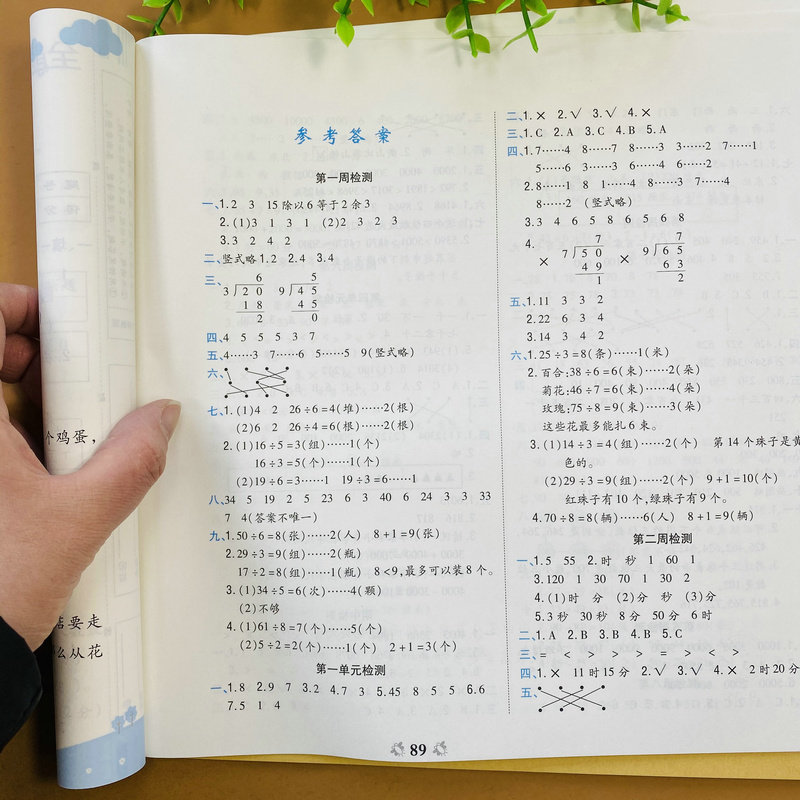 参考答案
第一周检测
一、1.2 3 15除以6等于2余3
2.(1)3 1 3 1 (2)2 3 2 3
3.3 2 4 2
二、竖式略1.2 2.4 3.4
三、
6
3√20
18
2
5
9√45
45
0
四、4 5 5 5 3 7
五、4……3 7……6 5……5 9(竖式略)
六、
七、1.(1)4 2 26÷6=4(堆)……2(根)
(2)6 2 26÷4=6(根)……2(根)
2.(1)16÷5=3(组)……1(个)
16÷3=5(个)……1(个)
(2)19÷6=3……1 19÷3=6……1
八、34 5 19 2 5 23 6 3 40 6 24 3 3 33
7 4(答案不唯一)
九、1.50÷6=8(张)……2(人) 8+1=9(张)
2.29÷3=9(组)……2(瓶)
17÷2=8(组)……1(瓶) 8<9,最多可以装8个。
3.(1)34÷5=6(次)……4(颗)
(2)不够
4.(1)61÷8=7(个)……5(个)
(2)5÷2=2(个)……1(个) 2+1=3(个)
第一单元检测
一、1.8 2.9 7 3.2 4.7 3 5.45 8 5 5 6.6
7.5 1 4
二、1.× 2.√ 3.√ 4.×
三、1.C 2.A 3.C 4.B 5.A
四、1.7……4 8……7 8……3 3……2 7……1
5……6 3……3 6……4 6……2
2.8……1 8 1……4 8……3 7……4
8……2 (竖式略)
3.3 4 6 5 8 6 5 6 8
4.
×
7
7√50
49
1
×
7
9√65
63
2
五、1.11 3 3 2
2.22 6 3 4
3.14 3 4 2
六、1.25÷3=8(条)……1(米)
2.百合:38÷6=6(束)……2(朵)
菊花:46÷7=6(束)……4(朵)
玫瑰:75÷8=9(束)……3(朵)
这些花最多能扎6束。
3.(1)14÷3=4(组)……2(个) 第14个珠子是黄
色的。
(2)29÷3=9(组)……2(个) 9+1=10(个)
红珠子有10个,绿珠子有9个。
4.70÷8=8(辆)……6(人) 8+1=9(辆)
第二周检测
一、1.5 55 2.时 秒 1 60 1
3.120 1 30 70 1 30 2
4.(1)时 分 (2)分 秒 (3)分
5.3秒 30秒 8分 50分 6时
二、1.A 2.B 3.B 4.B 5.C
三、= < > > > = > < >
四、1.× 11时15分 2.√ 3.√ 4.× 2时20分
五、
89
个鸡蛋,
要走
么从花